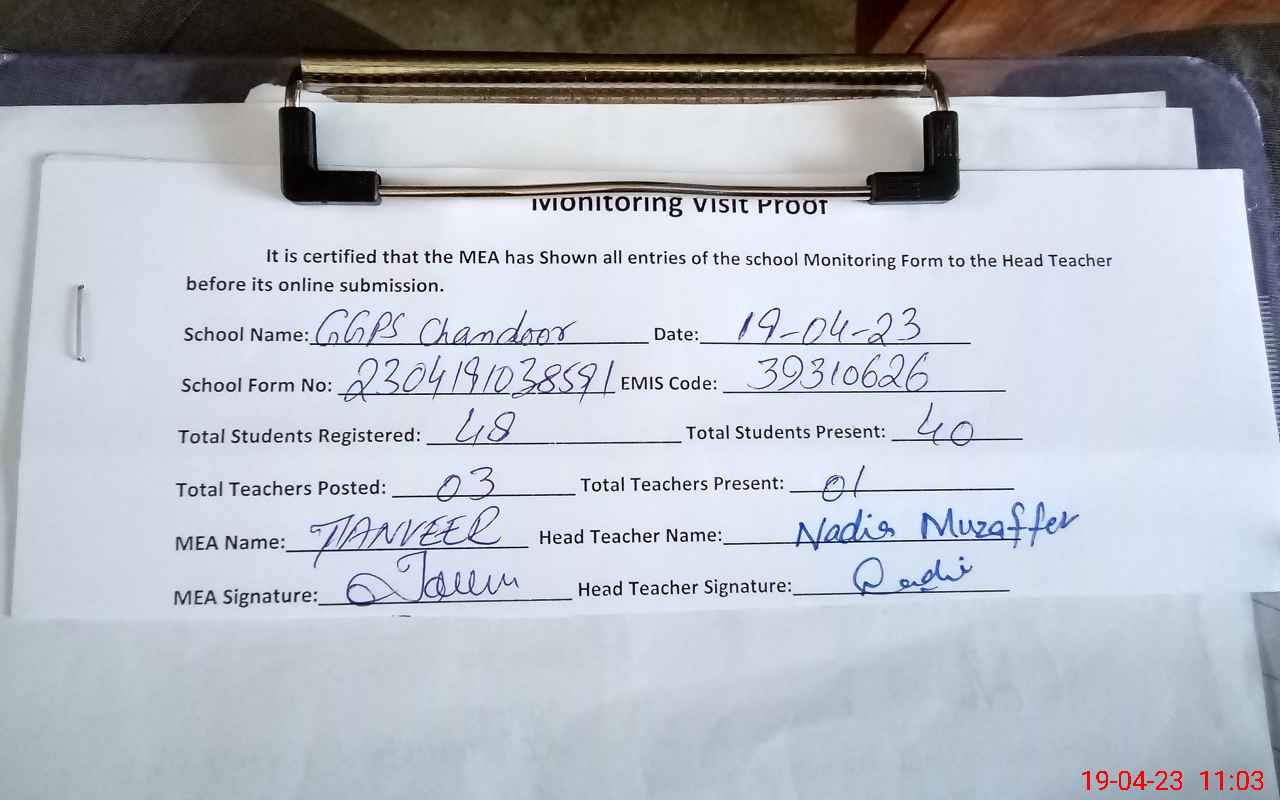 Monitoring Visit Proof
It is certified that the MEA has Shown all entries of the school Monitoring Form to the Head Teacher
before its online submission.
School Name: GGPS Chandoor Date: 19-04-23
School Form No: 2304191038591 EMIS Code: 39310626
Total Students Registered: 48 Total Students Present: 40
Total Teachers Posted: 03 Total Teachers Present: 01
MEA Name: TANVEER Head Teacher Name: Nadia Muzaffer
MEA Signature: Head Teacher Signature:
19-04-23 11:03